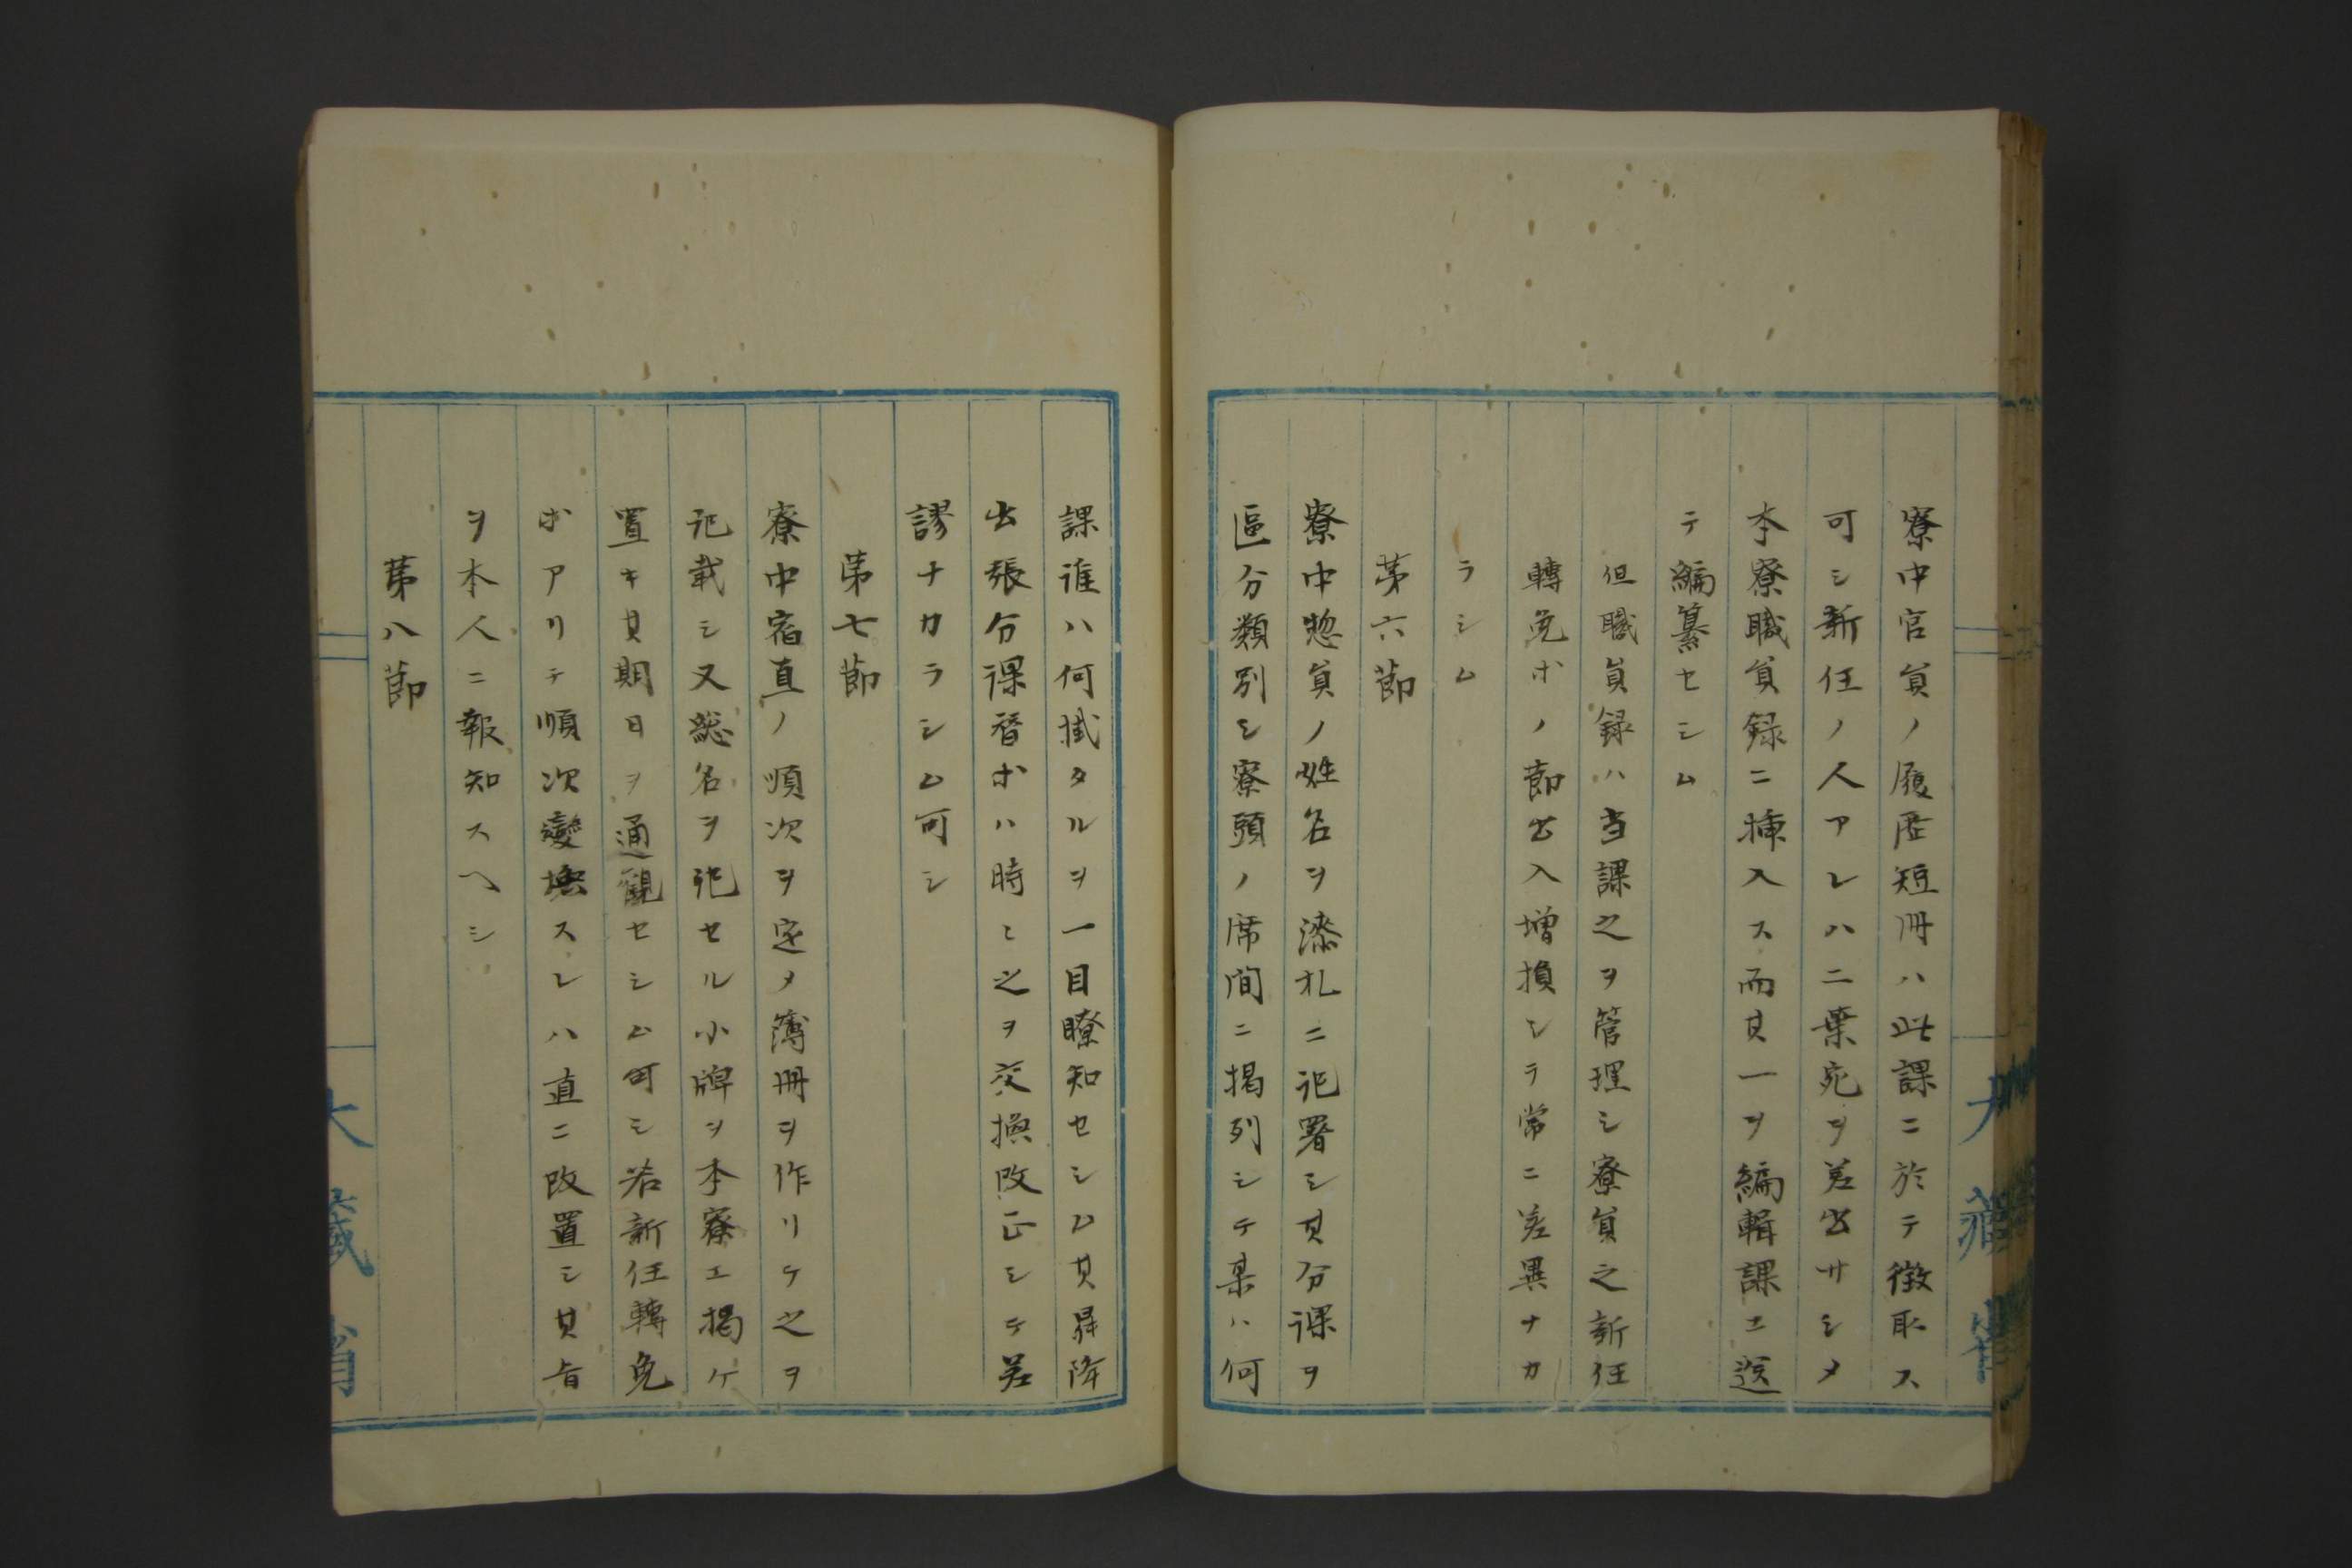 寮中官員ノ履歴短冊ハ此課ニ於テ徴取ス
可シ新任ノ人アレハ二葉宛ヲ差出サシメ
本寮職員録ニ挿入ス而其一ヲ編輯課エ送
テ編纂セシム
但職員録ハ当課之ヲ管理シ寮員之新任
轉免ホノ節出入増損シテ常ニ差異ナカ
ラシム
第六節
寮中惣員ノ姓名ヲ漆札ニ記署シ其分課ヲ
區分類別シ寮頭ノ席間ニ掲列シテ某ハ何
課誰ハ何掛タルヲ一目瞭知セシム其昇降
出張分課替ホハ時〻之ヲ交換改正シテ差
謬ナカラシム可シ
第七節
寮中宿直ノ順次ヲ定メ簿冊ヲ作リテ之ヲ
記載シ又総名ヲ記セル小牌ヲ本寮エ掲ケ
置キ其期日ヲ通観セシム可シ若新任轉免
ホアリテ順次變換スレハ直ニ改置シ其旨
ヲ本人ニ報知スヘシ
第八節
大藏省
大藏省